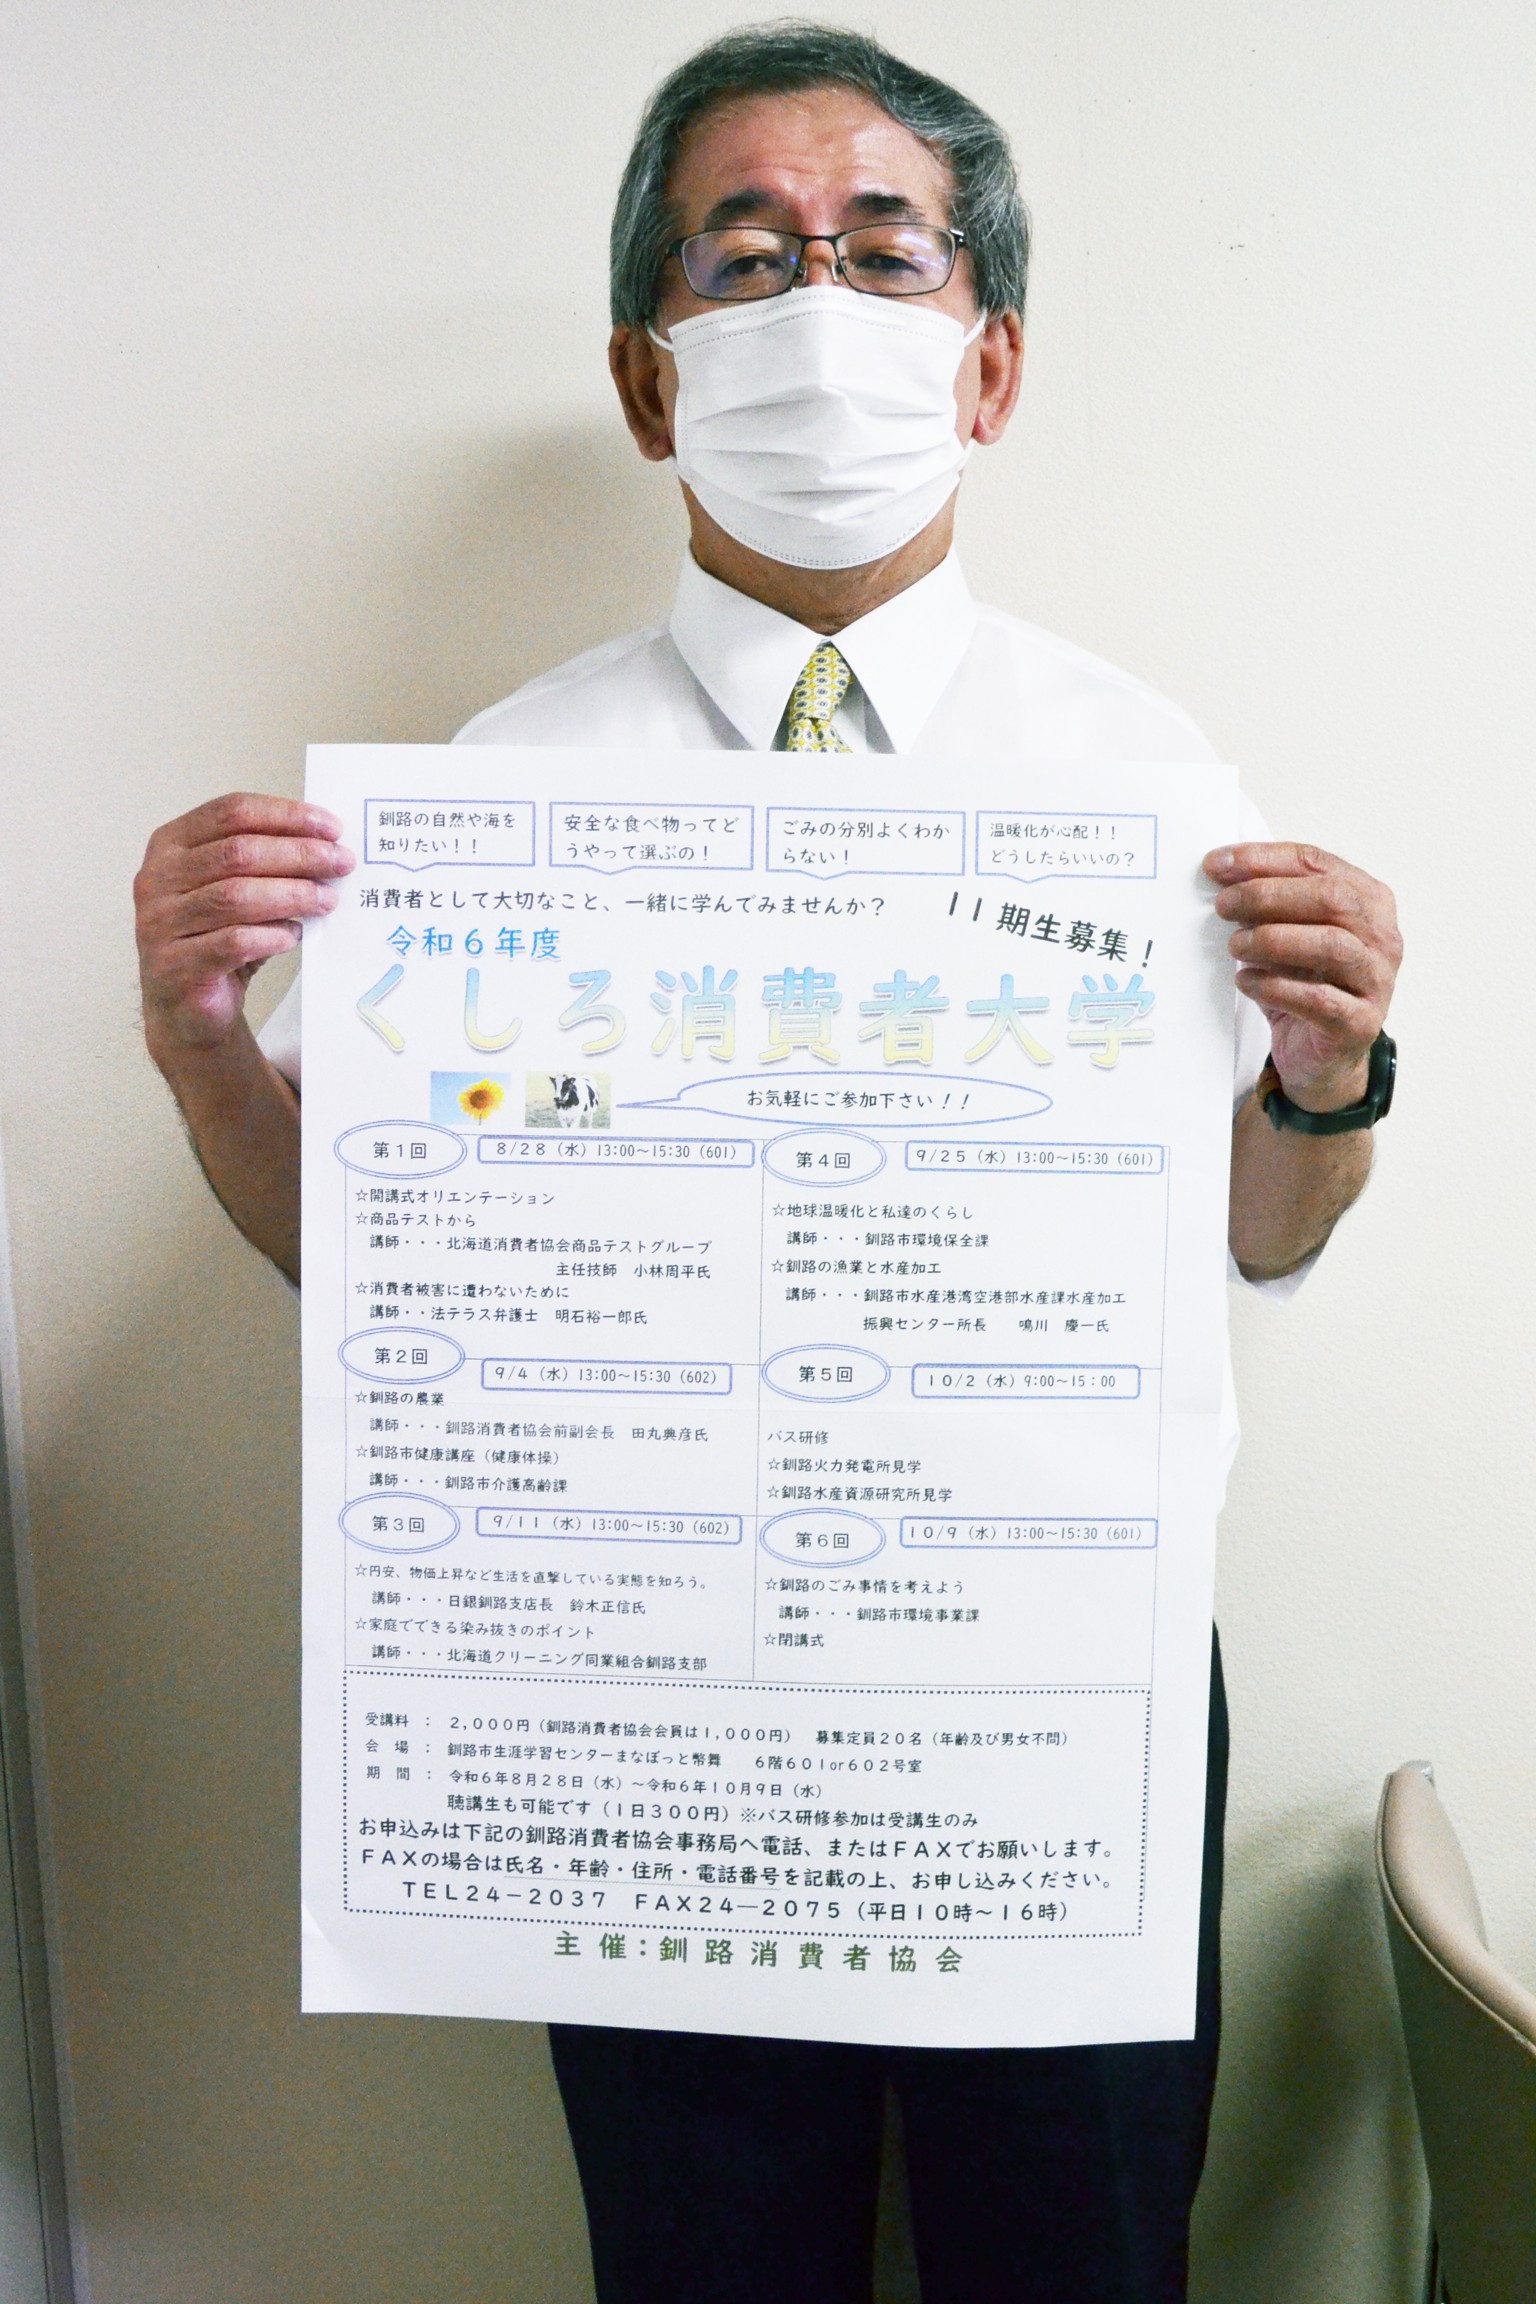 釧路の自然や海を
知りたい！！
安全な食べ物ってど
うやって選ぶの！
ごみの分別よくわか
らない！
温暖化が心配！！
どうしたらいいの？
消費者として大切なこと、一緒に学んでみませんか？
11期生募集！
令和６年度
くしろ消費者大学
お気軽にご参加下さい！！
第１回
8/28（水）13:00～15:30（601）
☆開講式オリエンテーション
☆商品テストから
講師・・・北海道消費者協会商品テストグループ
主任技師　小林周平氏
☆消費者被害に遭わないために
講師・・法テラス弁護士　明石裕一郎氏
第２回
9/4（水）13:00～15:30（602）
☆釧路の農業
講師・・・釧路消費者協会前副会長　田丸典彦氏
☆釧路市健康講座（健康体操）
講師・・・釧路市介護高齢課
第３回
9/11（水）13:00～15:30（602）
☆円安、物価上昇など生活を直撃している実態を知ろう。
講師・・・日銀釧路支店長　鈴木正信氏
☆家庭でできる染み抜きのポイント
講師・・・北海道クリーニング同業組合釧路支部
第４回
9/25（水）13:00～15:30（601）
☆地球温暖化と私達のくらし
講師・・・釧路市環境保全課
☆釧路の漁業と水産加工
講師・・・釧路市水産港湾空港部水産課水産加工
振興センター所長　　鳴川　慶一氏
第５回
10/2（水）9:00～15：00
バス研修
☆釧路火力発電所見学
☆釧路水産資源研究所見学
第６回
10/9（水）13:00～15:30（601）
☆釧路のごみ事情を考えよう
講師・・・釧路市環境事業課
☆閉講式
受講料　：　２,０００円（釧路消費者協会会員は１,０００円）　募集定員２０名（年齢及び男女不問）
会　場　：　釧路市生涯学習センターまなぼっと幣舞　　６階６０１or６０２号室
期　間　：　令和６年８月２８日（水）～令和６年１０月９日（水）
聴講生も可能です（１日３００円）※バス研修参加は受講生のみ
お申込みは下記の釧路消費者協会事務局へ電話、またはＦＡＸでお願いします。
ＦＡＸの場合は氏名・年齢・住所・電話番号を記載の上、お申し込みください。
ＴＥＬ２４－２０３７　ＦＡＸ２４―２０７５（平日１０時～１６時）
主催：釧路消費者協会